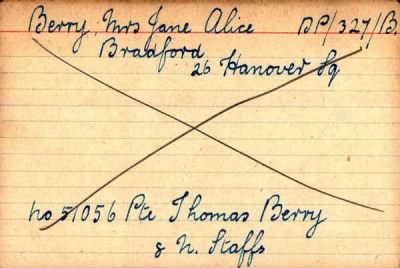 Berry, Mrs Jane Alice DP/327/B.
Bradford
26 Hanover Sq
No 51056 Pte Thomas Berry
8 N. Staffs